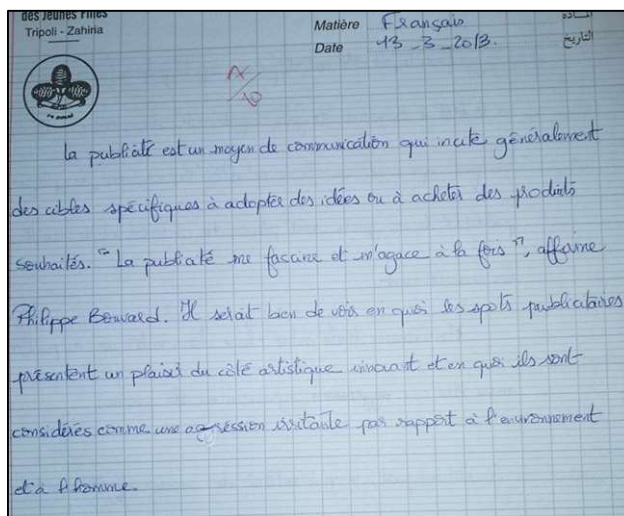 des Jeunes Filles
Tripoli - Zahiria
Matière Français
Date 13_3_2013.
التاريخ
La publicité est un moyen de communication qui incite généralement
des cibles spécifiques à adopter des idées ou à acheter des produits
souhaités. "La publicité me fascine et m'agace à la fois", affirme
Philippe Bouvard. Il serait bon de voir en quoi les spots publicitaires
présentent un plaisir du côté artistique innovant et en quoi ils sont
considérés comme une agression irritante par rapport à l'environnement
et à l'homme.